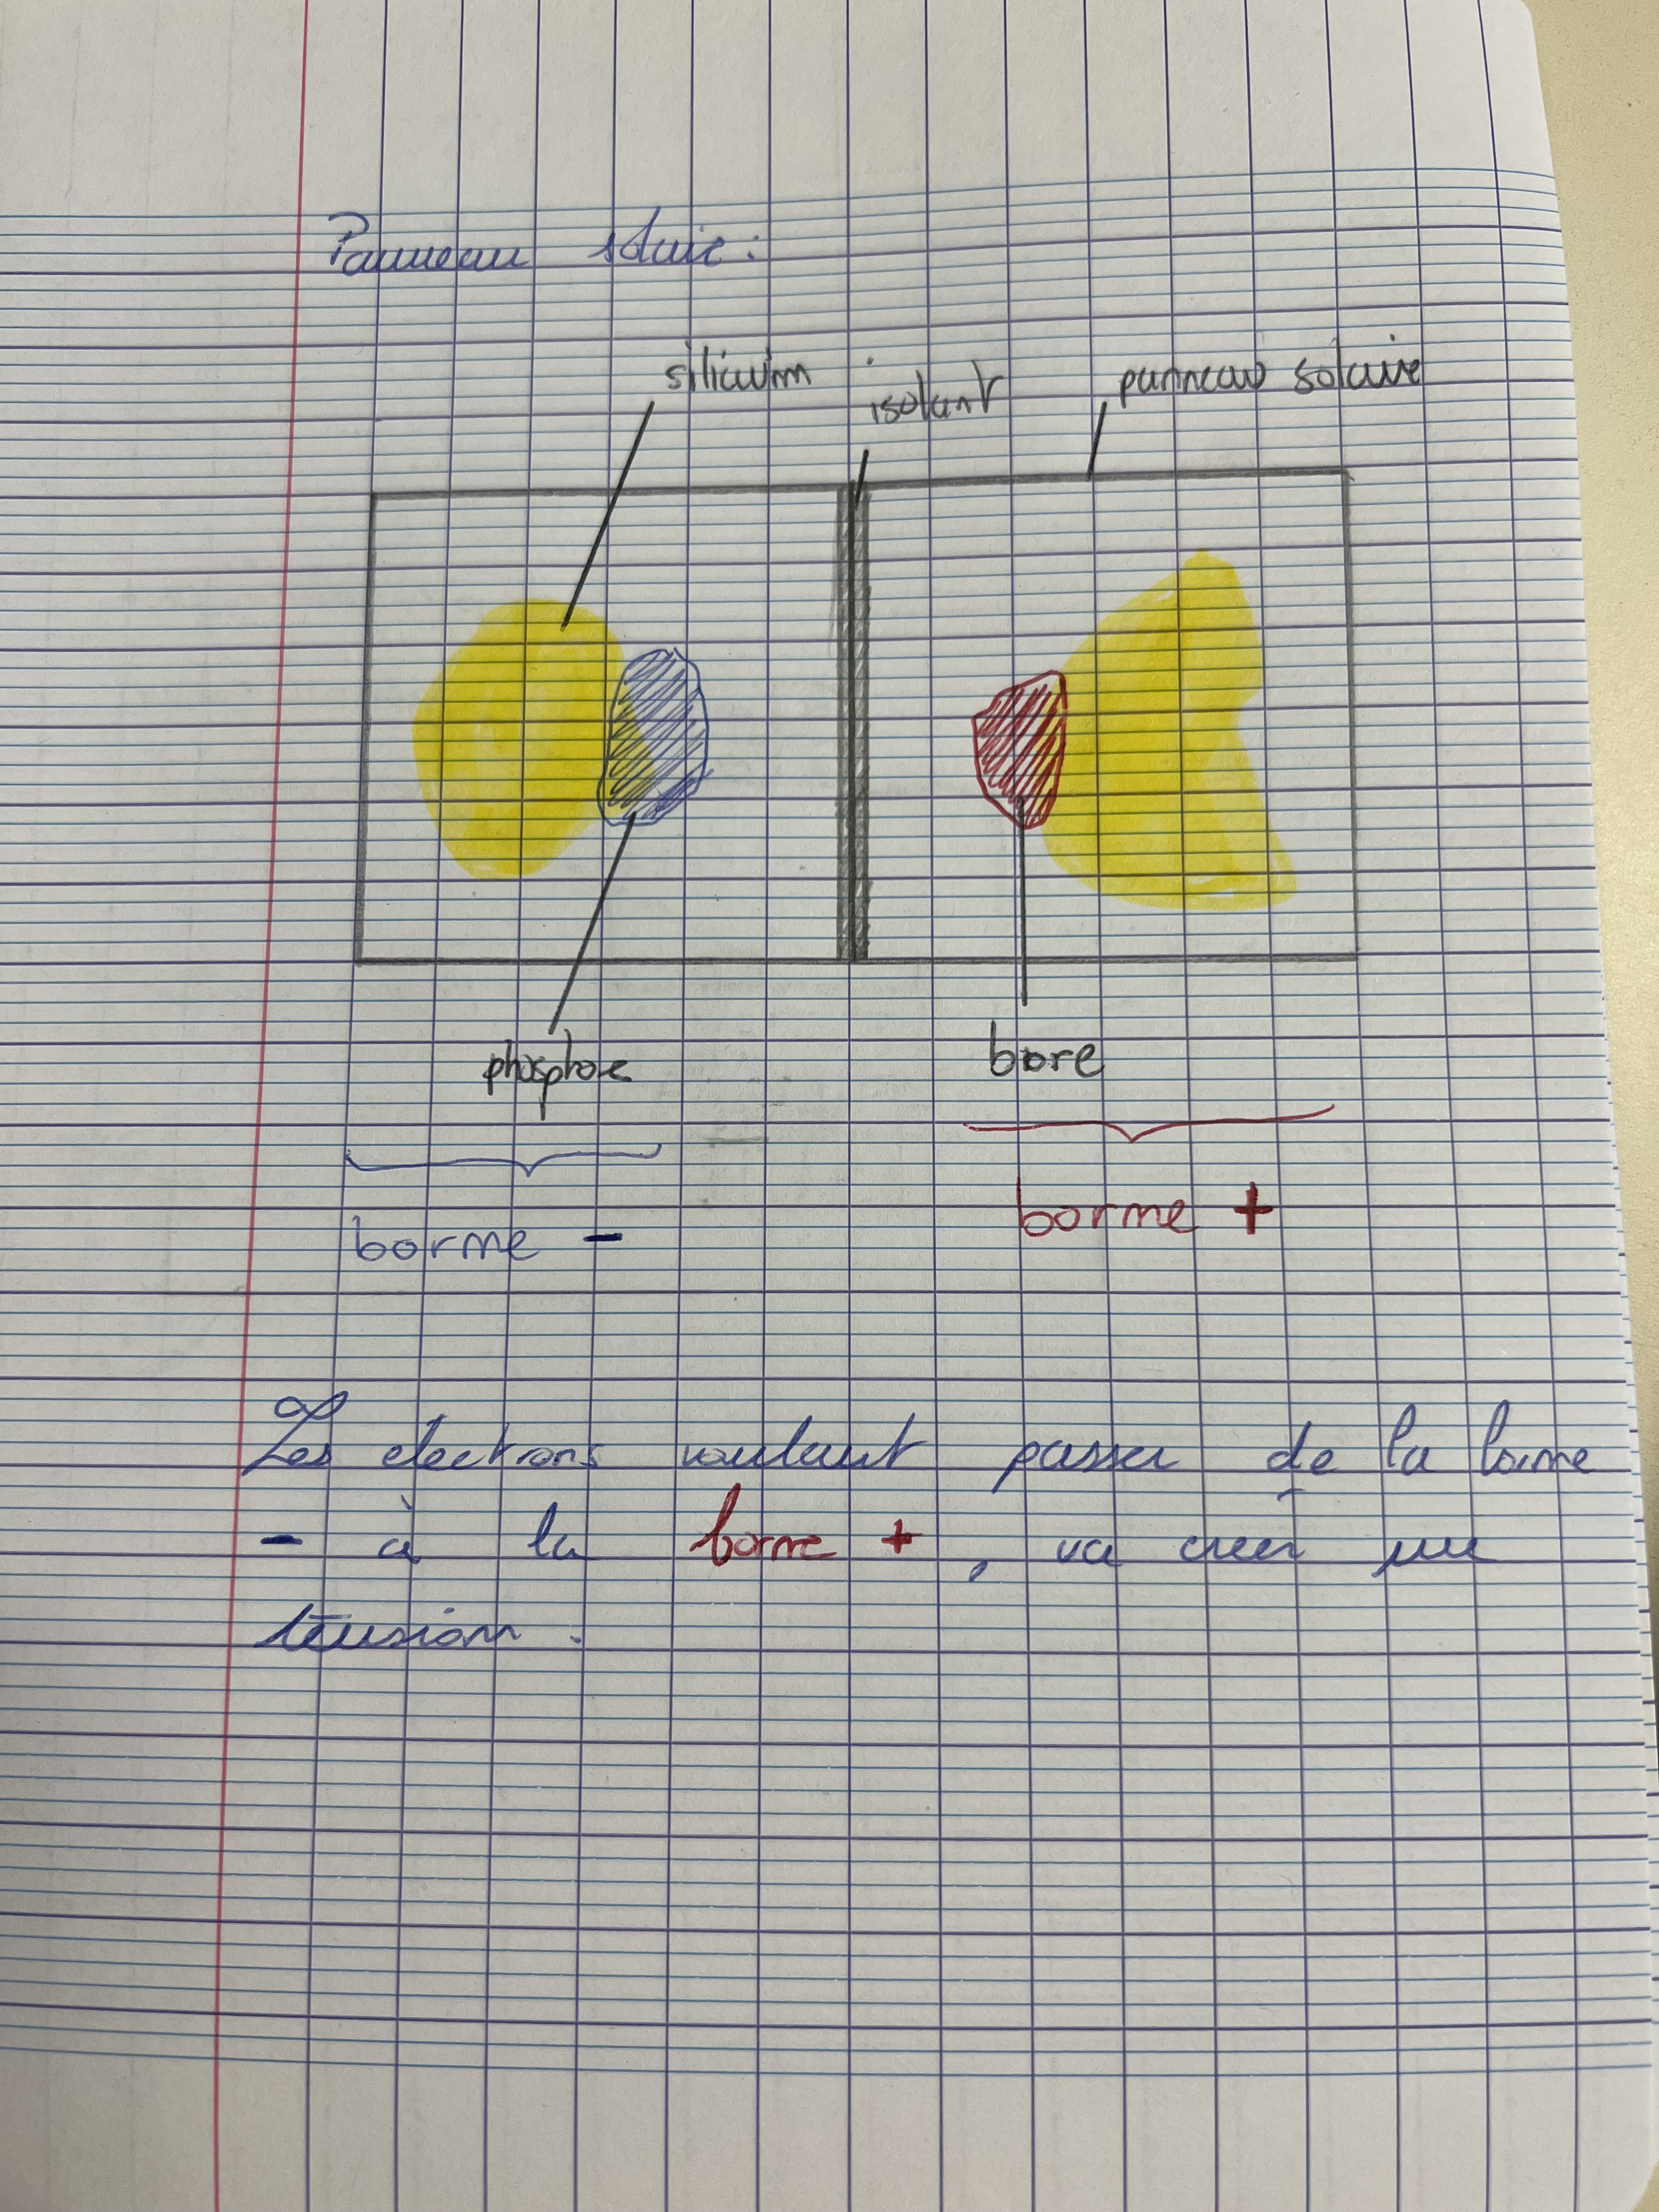 Panneau solaire :
silicium
isolant
panneau solaire
phosphore
bore
borne -
borne +
Les electrons voulant passer de la borne
- à la borne +, va créer une
tension.